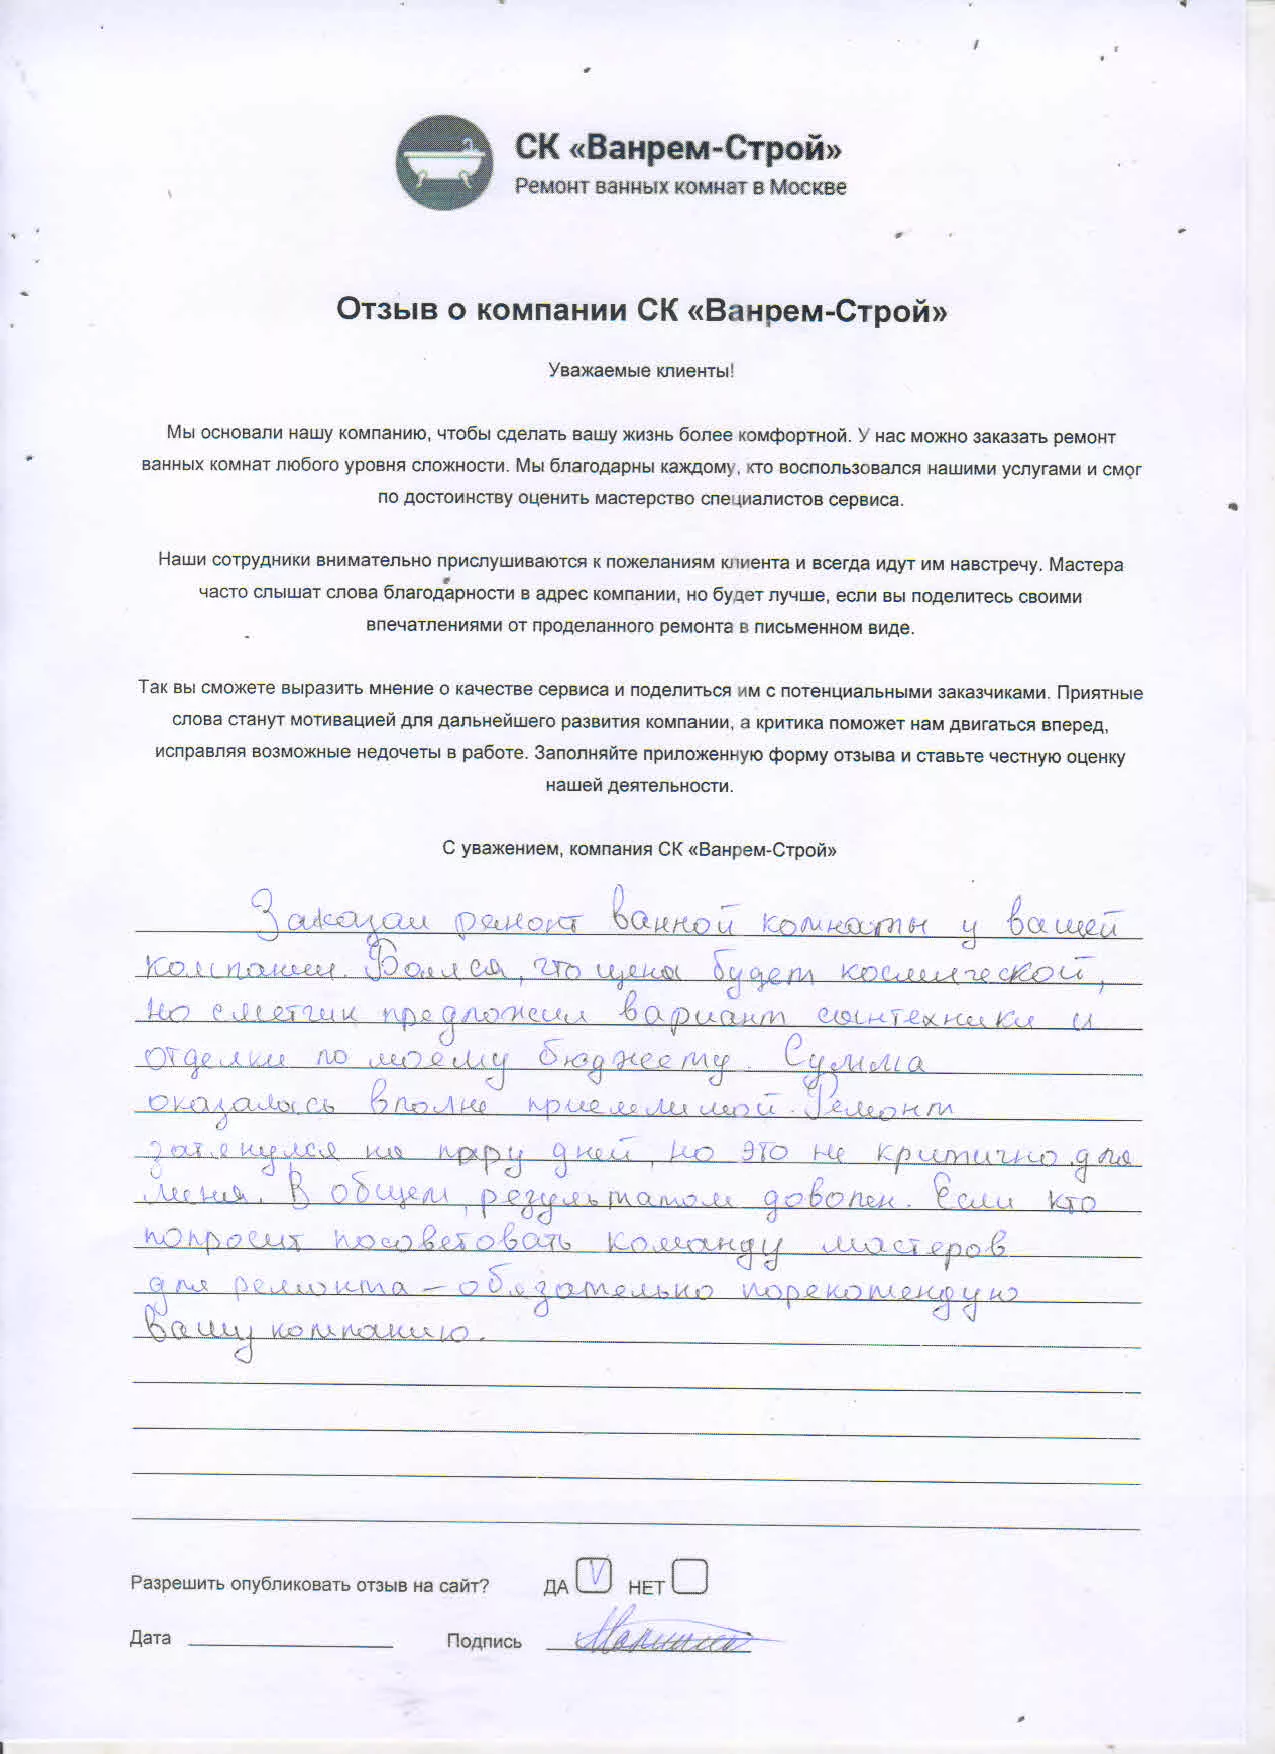 СК «Ванрем-Строй»
Ремонт ванных комнат в Москве
Отзыв о компании СК «Ванрем-Строй»
Уважаемые клиенты!
Мы основали нашу компанию, чтобы сделать вашу жизнь более комфортной. У нас можно заказать ремонт
ванных комнат любого уровня сложности. Мы благодарны каждому, кто воспользовался нашими услугами и смог
по достоинству оценить мастерство специалистов сервиса.
Наши сотрудники внимательно прислушиваются к пожеланиям клиента и всегда идут им навстречу. Мастера
часто слышат слова благодарности в адрес компании, но будет лучше, если вы поделитесь своими
впечатлениями от проделанного ремонта в письменном виде.
Так вы сможете выразить мнение о качестве сервиса и поделиться им с потенциальными заказчиками. Приятные
слова станут мотивацией для дальнейшего развития компании, а критика поможет нам двигаться вперед,
исправляя возможные недочеты в работе. Заполняйте приложенную форму отзыва и ставьте честную оценку
нашей деятельности.
С уважением, компания СК «Ванрем-Строй»
Заказал ремонт ванной комнаты у вашей
компании. Боялся, что цена будет космической,
но сметчик предложил вариант сантехники и
отделки по моему бюджету. Сумма
оказалась вполне приемлимой. Ремонт
затянулся на пару дней, но это не критично для
меня. В общем, результатом доволен. Если кто
попросит посоветовать команду мастеров
для ремонта – обязательно порекомендую
вашу компанию.
Разрешить опубликовать отзыв на сайт? ДА V НЕТ
Дата Подпись